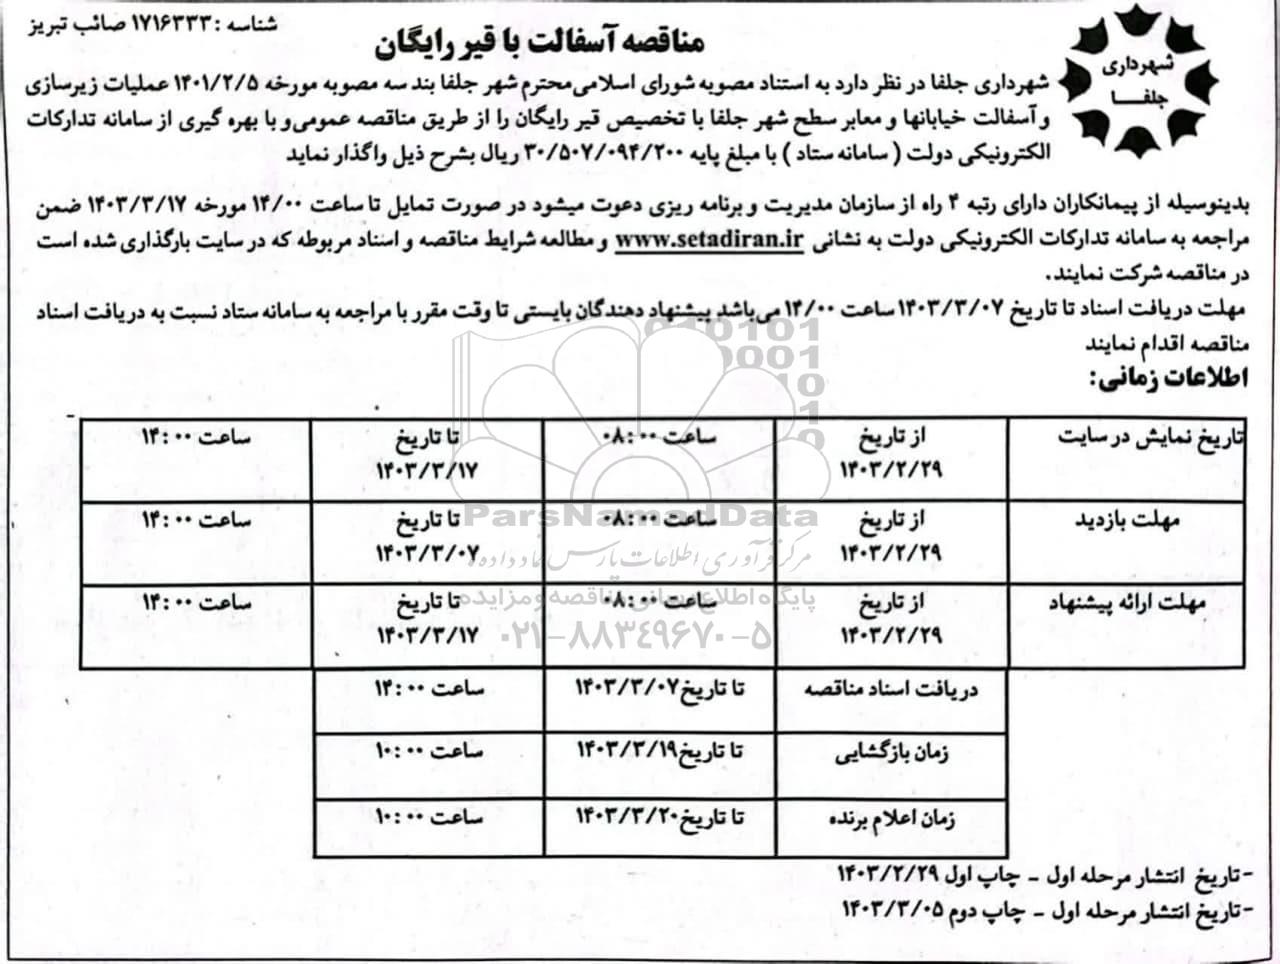 شناسه : ۱۷۱۶۳۳۳ صائب تبریز
مناقصه آسفالت با قیر رایگان
شهرداری
جلفا
شهرداری جلفا در نظر دارد به استناد مصوبه شورای اسلامی محترم شهر جلفا بند سه مصوبه مورخه ۱۴۰۱/۲/۵ عملیات زیرسازی
و آسفالت خیابانها و معابر سطح شهر جلفا با تخصیص قیر رایگان را از طریق مناقصه عمومی و با بهره گیری از سامانه تدارکات
الکترونیکی دولت ( سامانه ستاد ) با مبلغ پایه ۳۰/۵۰۷/۰۹۴/۲۰۰ ریال بشرح ذیل واگذار نماید
بدینوسیله از پیمانکاران دارای رتبه ۴ راه از سازمان مدیریت و برنامه ریزی دعوت میشود در صورت تمایل تا ساعت ۱۴/۰۰ مورخه ۱۴۰۳/۳/۱۷ ضمن
مراجعه به سامانه تدارکات الکترونیکی دولت به نشانی www.setadiran.ir و مطالعه شرایط مناقصه و اسناد مربوطه که در سایت بارگذاری شده است
در مناقصه شرکت نمایند.
مهلت دریافت اسناد تا تاریخ ۱۴۰۳/۳/۰۷ ساعت ۱۴/۰۰ می‌باشد پیشنهاد دهندگان بایستی تا وقت مقرر با مراجعه به سامانه ستاد نسبت به دریافت اسناد
مناقصه اقدام نمایند
اطلاعات زمانی:
تاریخ نمایش در سایت از تاریخ ۱۴۰۳/۲/۲۹ ساعت ۰۸:۰۰ تا تاریخ ۱۴۰۳/۳/۱۷ ساعت ۱۴:۰۰
مهلت بازدید از تاریخ ۱۴۰۳/۲/۲۹ ساعت ۰۸:۰۰ تا تاریخ ۱۴۰۳/۳/۰۷ ساعت ۱۴:۰۰
مهلت ارائه پیشنهاد از تاریخ ۱۴۰۳/۲/۲۹ ساعت ۰۸:۰۰ تا تاریخ ۱۴۰۳/۳/۱۷ ساعت ۱۴:۰۰
دریافت اسناد مناقصه تا تاریخ ۱۴۰۳/۳/۰۷ ساعت ۱۴:۰۰
زمان بازگشایی تا تاریخ ۱۴۰۳/۳/۱۹ ساعت ۱۰:۰۰
زمان اعلام برنده تا تاریخ ۱۴۰۳/۳/۲۰ ساعت ۱۰:۰۰
-تاریخ انتشار مرحله اول - چاپ اول ۱۴۰۳/۲/۲۹
-تاریخ انتشار مرحله اول - چاپ دوم ۱۴۰۳/۳/۰۵
ParsNamadData
مرکز فرآوری اطلاعات پارس نماد داده ها
پایگاه اطلاع رسانی مناقصه و مزایده
۰۲۱-۸۸۳۴۹۶۷۰-۵